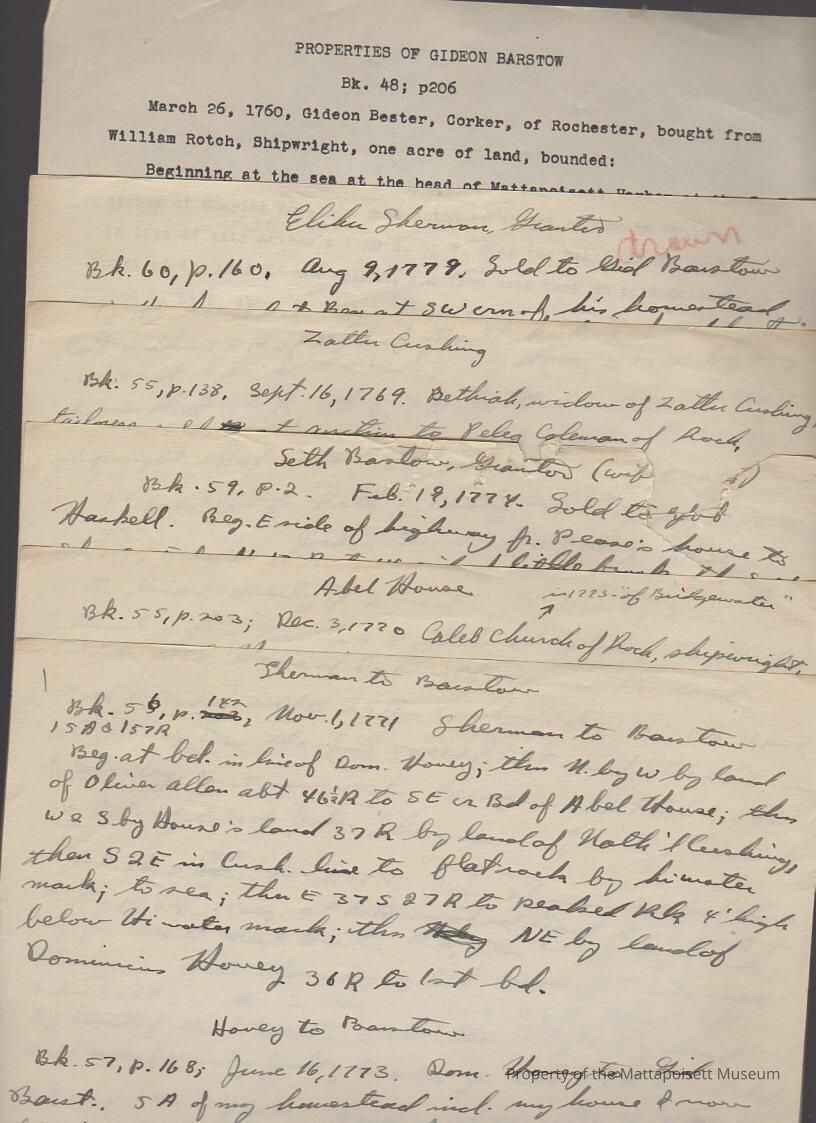 PROPERTIES OF GIDEON BARSTOW
Bk. 48; p206
March 26, 1760, Gideon Bester, Corker, of Rochester, bought from
William Rotch, Shipwright, one acre of land, bounded:
Beginning at the sea at the head of Mattapoisett
Elihu Sherman, Grantor
drawn
Bk. 60, p.160. Aug 9, 1779. Sold to Gid Barstow
Beg at SW crn of his homestead
Zattu Cushing
Bk. 55, p.138. Sept. 16, 1769. Bethiah, widow of Zattu Cushing,
auction to Peleg Coleman of Roch,
Seth Barstow, Grantor (wif
Bk. 59, p.2. Feb. 19, 1774. Sold to
Haskell. Beg. E side of highway fr. Pease's house to
Abel House
in 1773 "of Bridgewater"
Bk. 55, p.203; Dec. 3, 1770 Caleb Church of Roch, shipwright,
Sherman to Barstow
Bk. 56, p. 142, Nov. 1, 1771 Sherman to Barstow
15A & 157R
Beg. at bd. in line of Dom. Hovey; thn N. by W by land
of Oliver Allen abt 46½R to SE cr Bd of Abel House; thn
W & S by House's land 37R by land of Nath'l Cushing,
then S 2 E in Cush. line to flat rock by hi water
mark; to sea; thn E 37 S 27R to peaked Rk 4' high
below Hi water mark; thn NE by land of
Dominicus Hovey 36R to 1st bd.
Hovey to Barstow
Bk. 57, p. 168; June 16, 1773. Dom. Hovey to Gid
Property of the Mattapoisett Museum
Barst. 5A of my homestead incl. my house & now